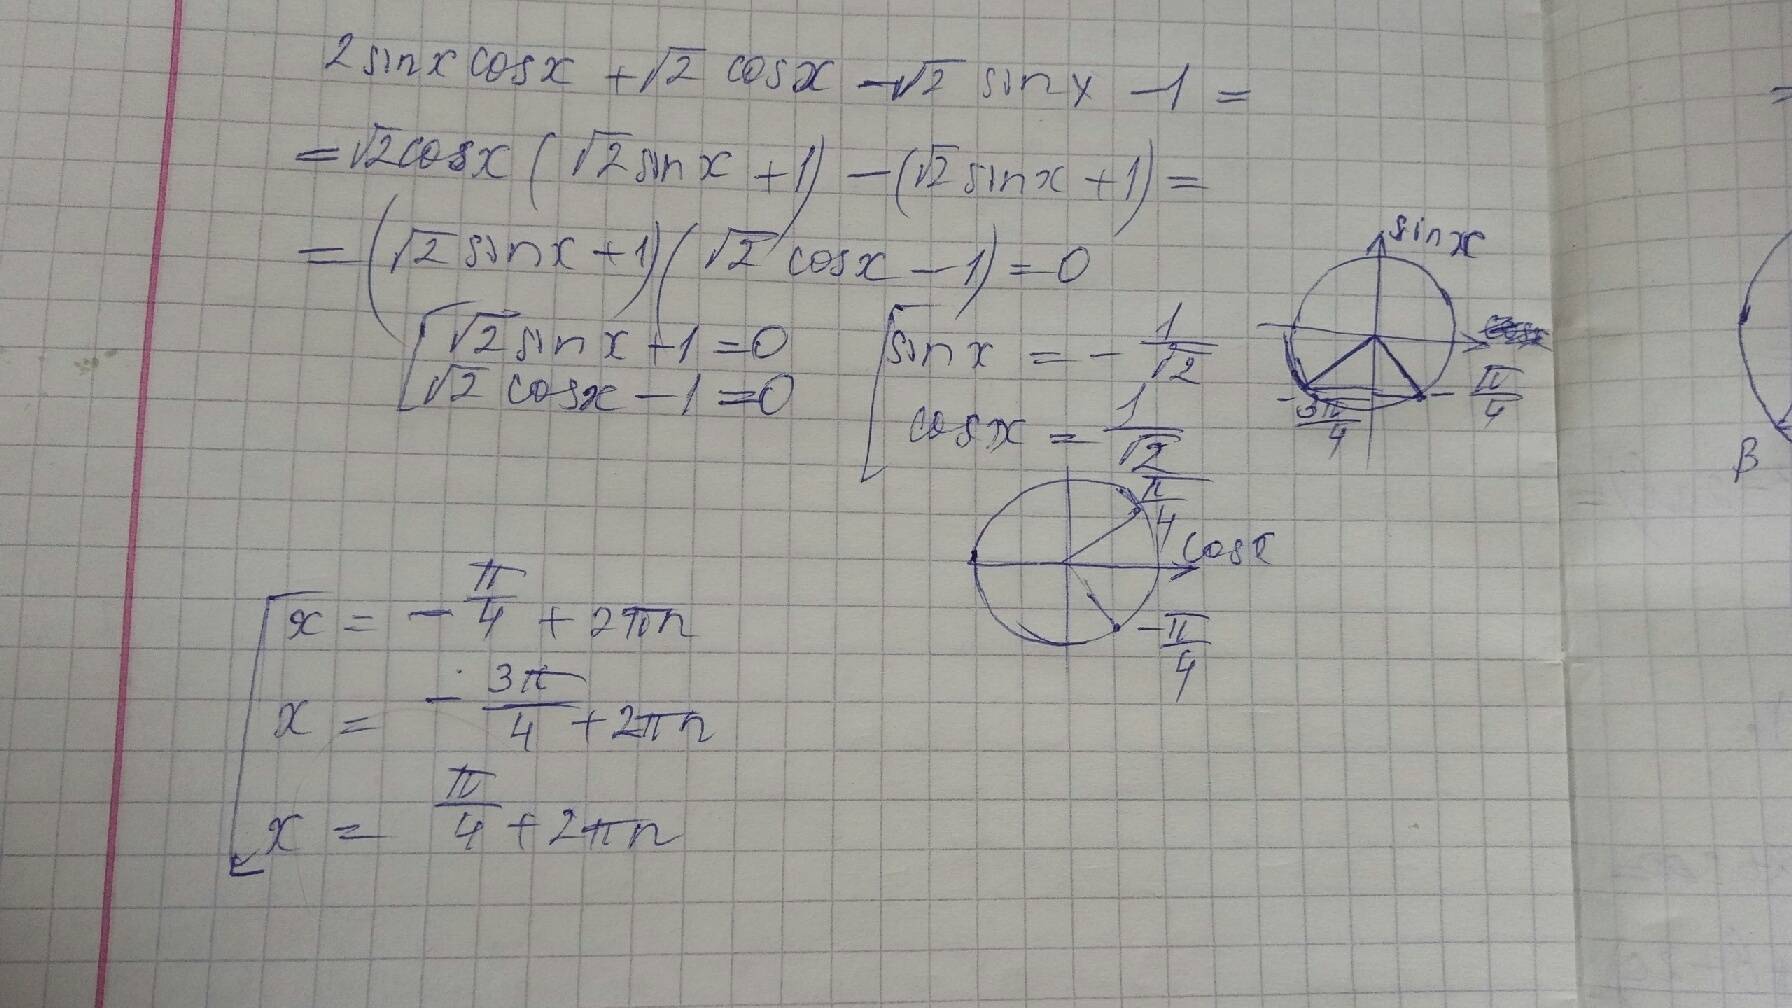 2 sin x cos x + √2 cos x − √2 sin x − 1 =
= √2 cos x ( √2 sin x + 1) − (√2 sin x + 1) =
= (√2 sin x + 1) ( √2 cos x − 1) = 0
√2 sin x + 1 = 0
√2 cos x − 1 = 0
sin x = − 1/√2
cos x = 1/√2
sin x
− 3π/4
− π/4
π/4
cos x
− π/4
x = − π/4 + 2πn
x = − 3π/4 + 2πn
x = π/4 + 2πn
=
β